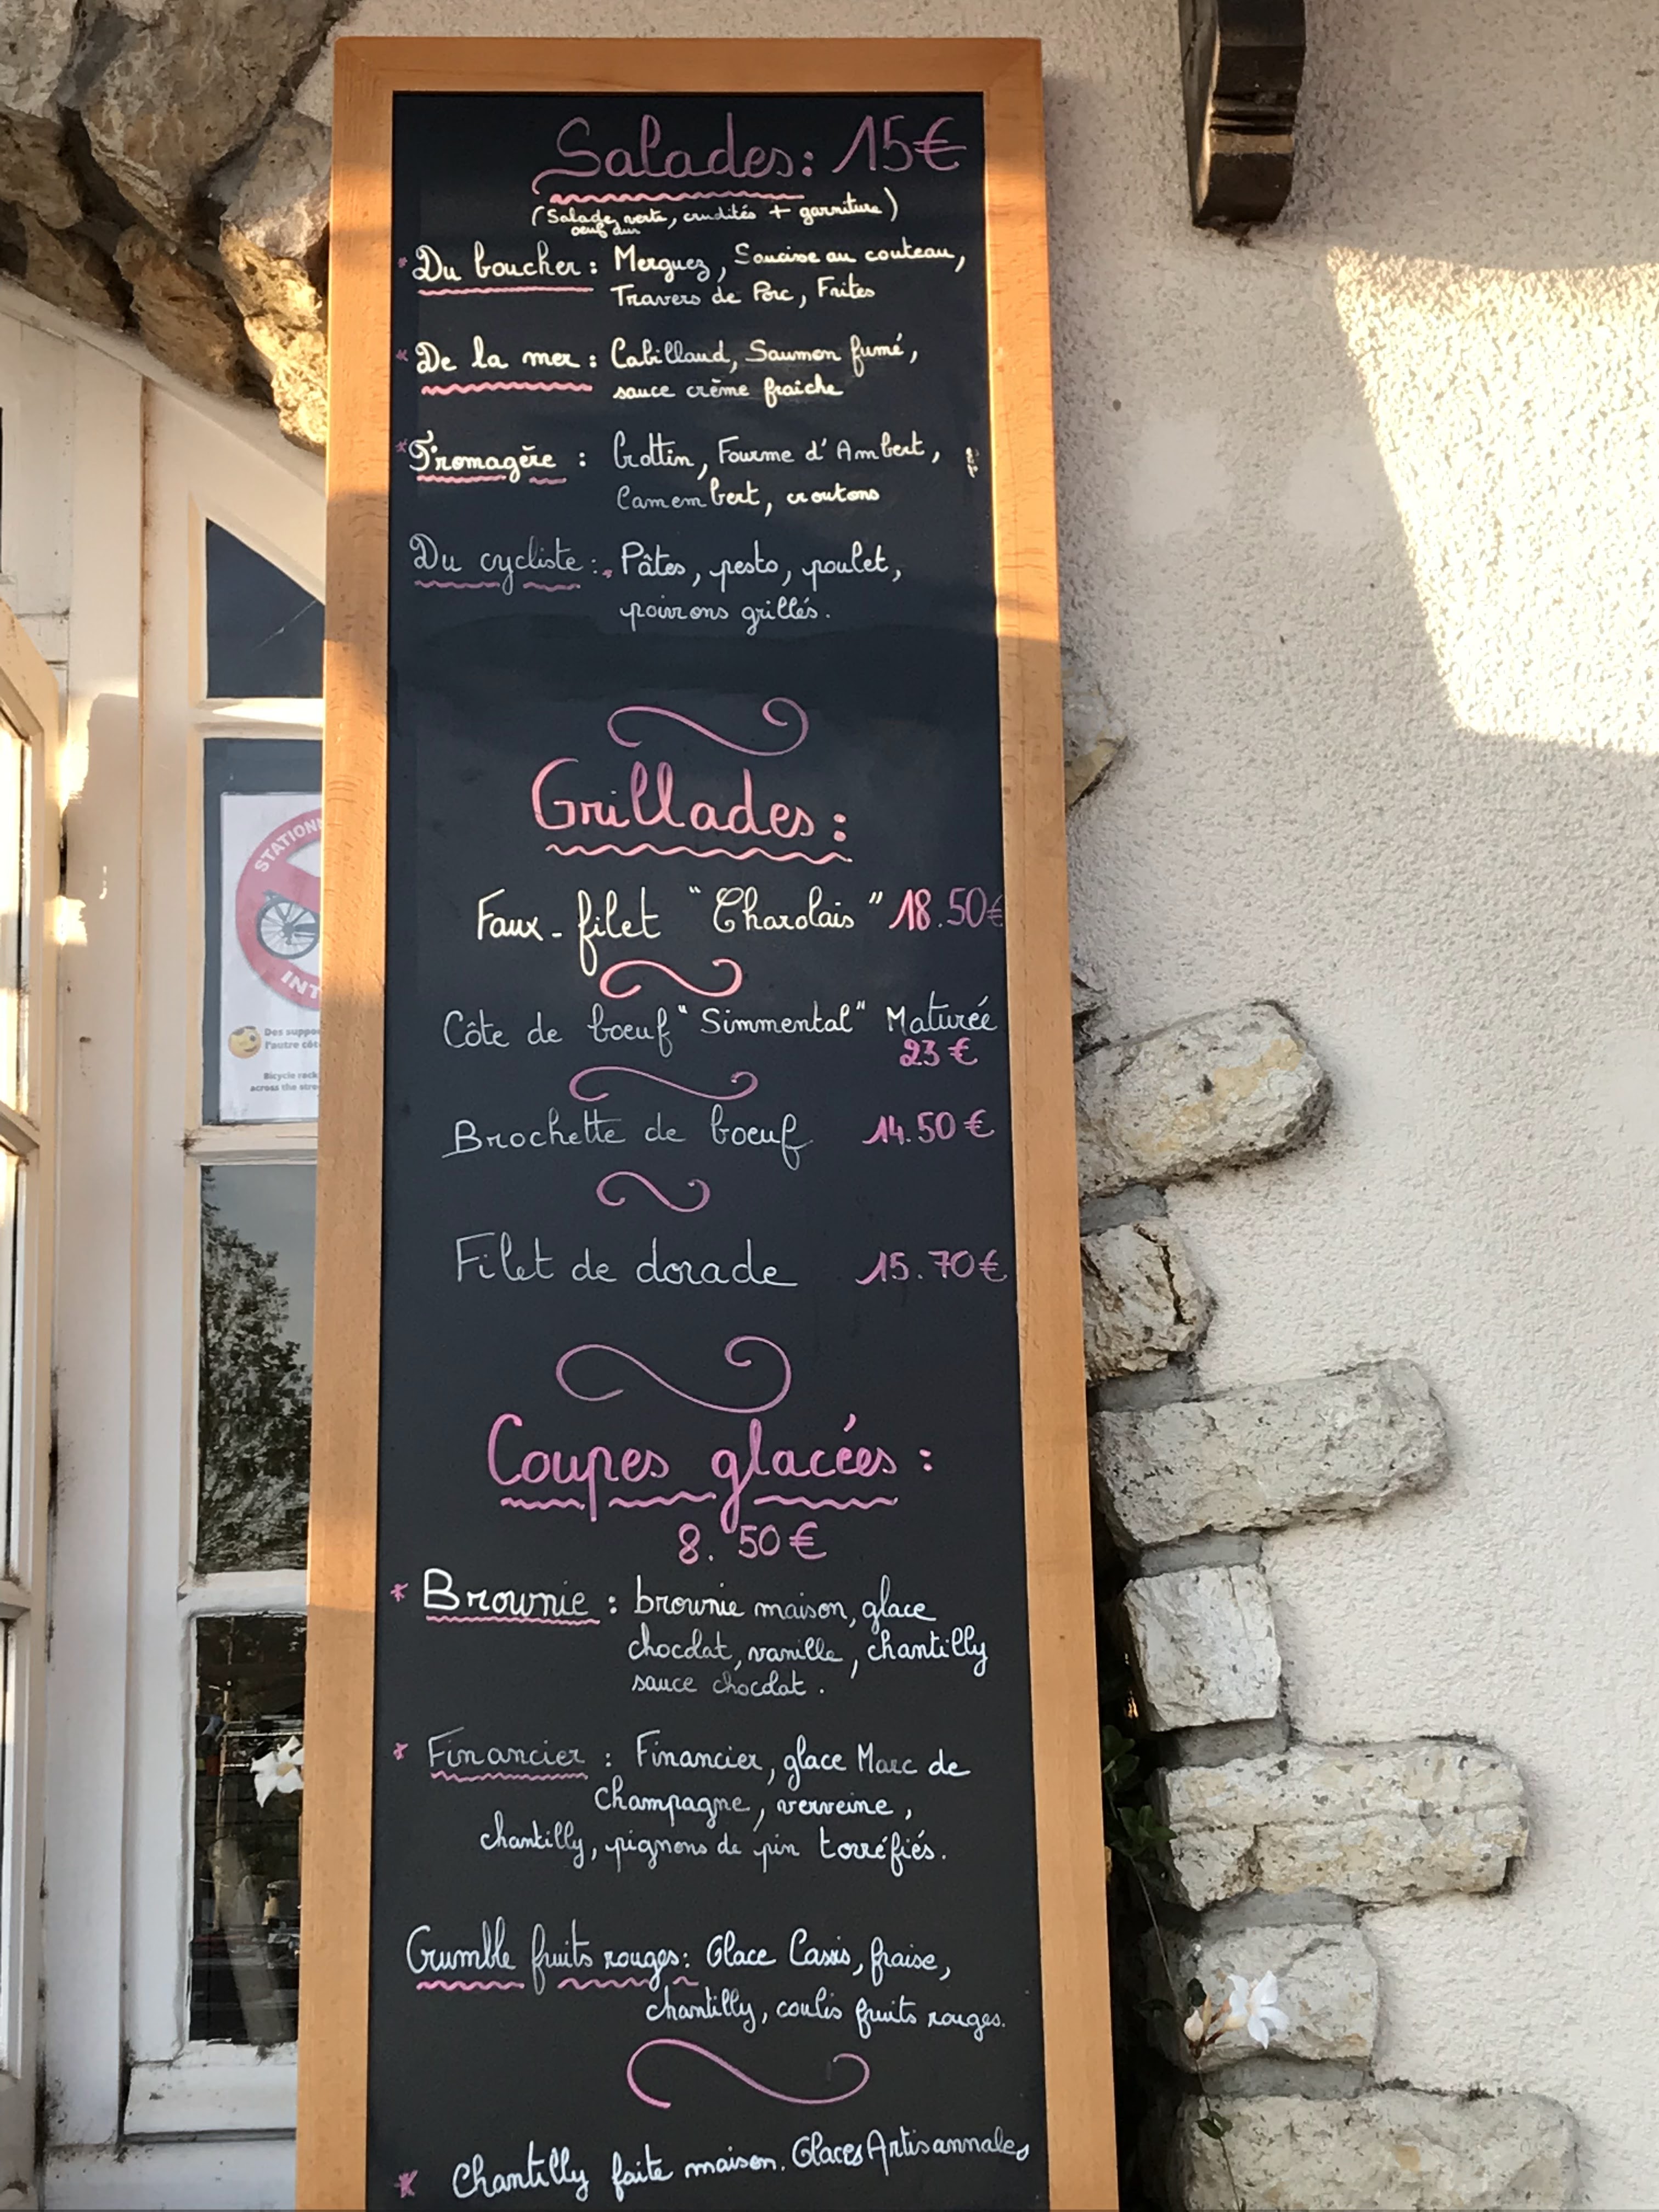 Salades: 15€
(Salade verte, crudités + garniture)
oeuf dur
* Du boucher: Merguez, Saucisse au couteau,
Travers de Porc, Frites
* De la mer: Cabillaud, Saumon fumé,
sauce crème fraiche
* Fromagère: Crottin, Fourme d'Ambert,
Camembert, croutons
Du cycliste: Pâtes, pesto, poulet,
poivrons grillés.
Grillades:
Faux-filet "Charolais" 18.50€
Côte de boeuf "Simmental" Maturée
23€
Brochette de boeuf 14.50€
Filet de dorade 15.70€
Coupes glacées:
8.50€
* Brownie: brownie maison, glace
chocolat, vanille, chantilly
sauce chocolat.
* Financier: Financier, glace Marc de
Champagne, verveine,
chantilly, pignons de pin torréfiés.
Crumble fruits rouges: Glace Cassis, fraise,
chantilly, coulis fruits rouges.
* Chantilly faite maison. Glaces Artisannales
STATIONN
INT
Des suppor
l'autre côt
Bicycle rack
across the stre